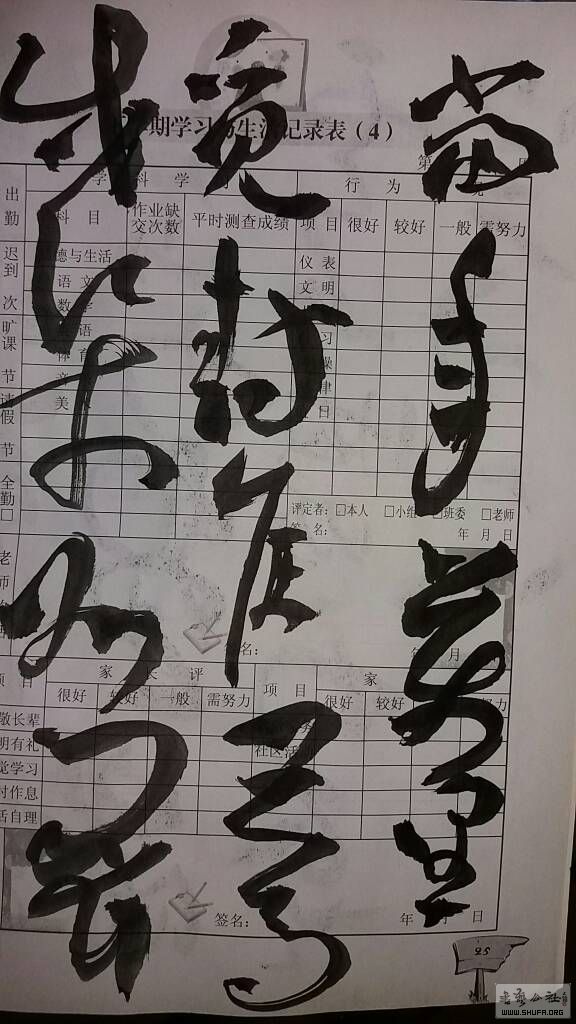 當年萬里
覓封侯匹馬
戍梁州關
期学习与生活记录表（4）
第
学 科 学 习
行 为
出勤
科 目
作业缺交次数
平时测查成绩
项 目
很好
较好
一般
需努力
迟到 次
旷课 节
请假 节
全勤□
德与生活
语 文
数 学
语
体 育
音
美
仪 表
文 明
习
操
津
日
评定者：☑本人 □小组 □班委 □老师
签 名：
年 月 日
老师
签名：
年 月
项 目
家 长 评
很好
较好
一般
需努力
项 目
家
很好
较好
努力
敬长辈
明有礼
觉学习
时作息
活自理
社区活
签名：
年 月 日
25
书法公社
WWW.SHUFA.ORG